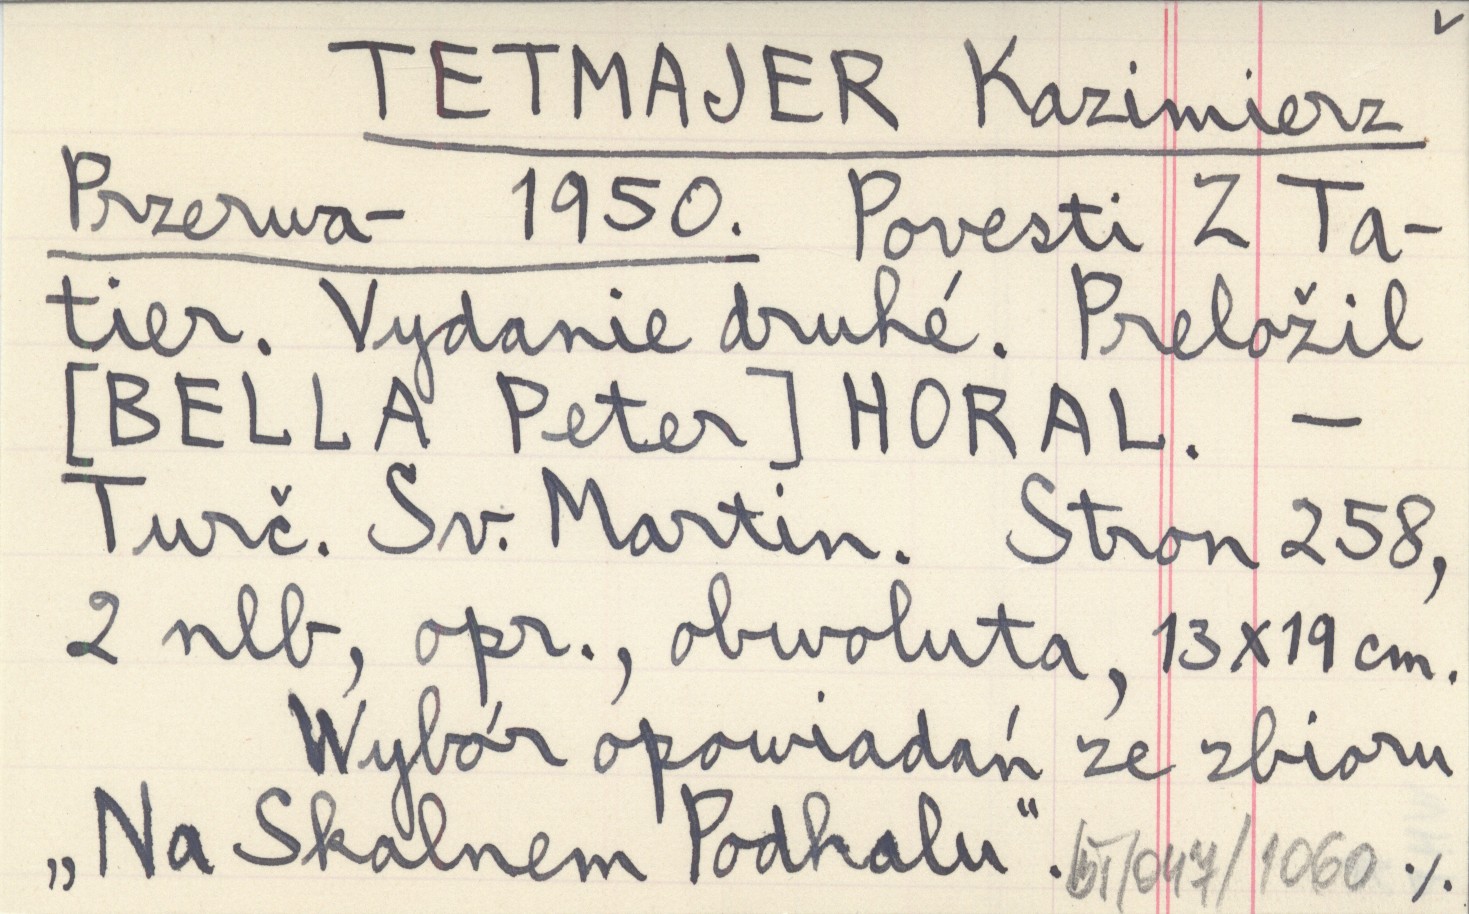 TETMAJER Kazimierz
Przerwa- 1950. Povesti Z Ta-
tier. Vydanie druhé. Preložil
[BELLA Peter] HORAL. —
Turč. Sv. Martin. Stron 258,
2 nlb, opr., obwoluta, 13x19 cm.
Wybór opowiadań ze zbioru
„Na Skalnem Podhalu“. /047/1060 ./.